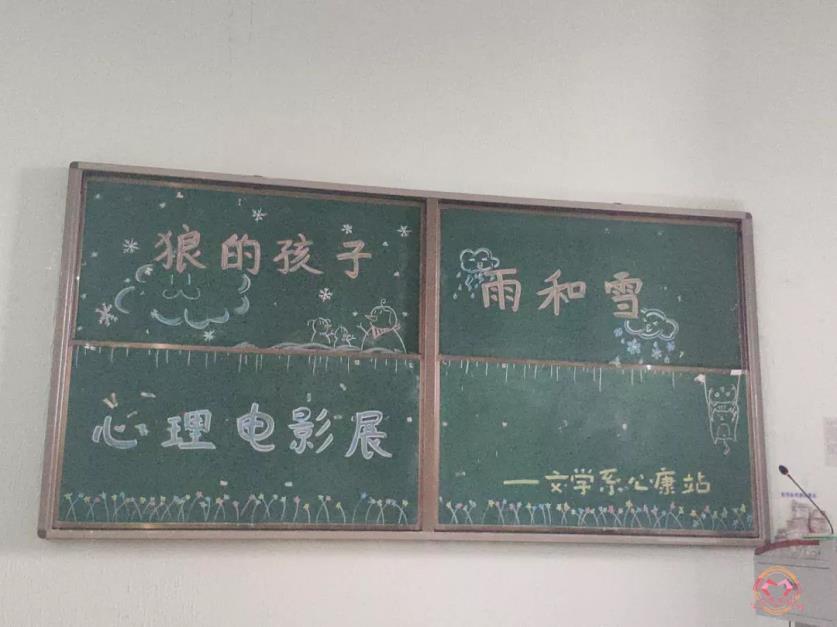 狼的孩子
雨和雪
心理电影展
—文学系心康站